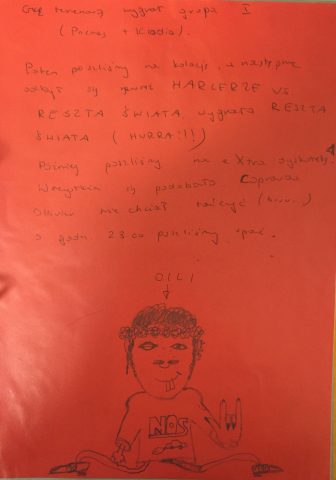 Grę terenową wygrał grupa I
( + Klaudia).
Potem poszliśmy na kolację, a następnie
odbył się HARCERZE VS
RESZTA ŚWIATA wygrała RESZTA
ŚWIATA (HURRA!!!)
Później poszliśmy na dyskotekę
Wszystkim się podobało. Coprawda
nie chciał tańczyć
o godz. 23 00 poszliśmy spać.
OILI
NOS